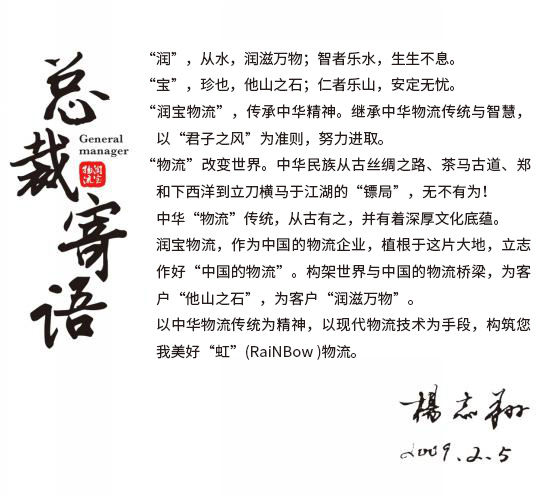 总裁寄语
General
manager
润宝
物流
“润”，从水，润滋万物；智者乐水，生生不息。
“宝”，珍也，他山之石；仁者乐山，安定无忧。
“润宝物流”，传承中华精神。继承中华物流传统与智慧，
以“君子之风”为准则，努力进取。
“物流”改变世界。中华民族从古丝绸之路、茶马古道、郑
和下西洋到立刀横马于江湖的“镖局”，无不有为！
中华“物流”传统，从古有之，并有着深厚文化底蕴。
润宝物流，作为中国的物流企业，植根于这片大地，立志
作好“中国的物流”。构架世界与中国的物流桥梁，为客
户“他山之石”，为客户“润滋万物”。
以中华物流传统为精神，以现代物流技术为手段，构筑您
我美好“虹”(RaiNBow )物流。
楊志翔
2009.2.5